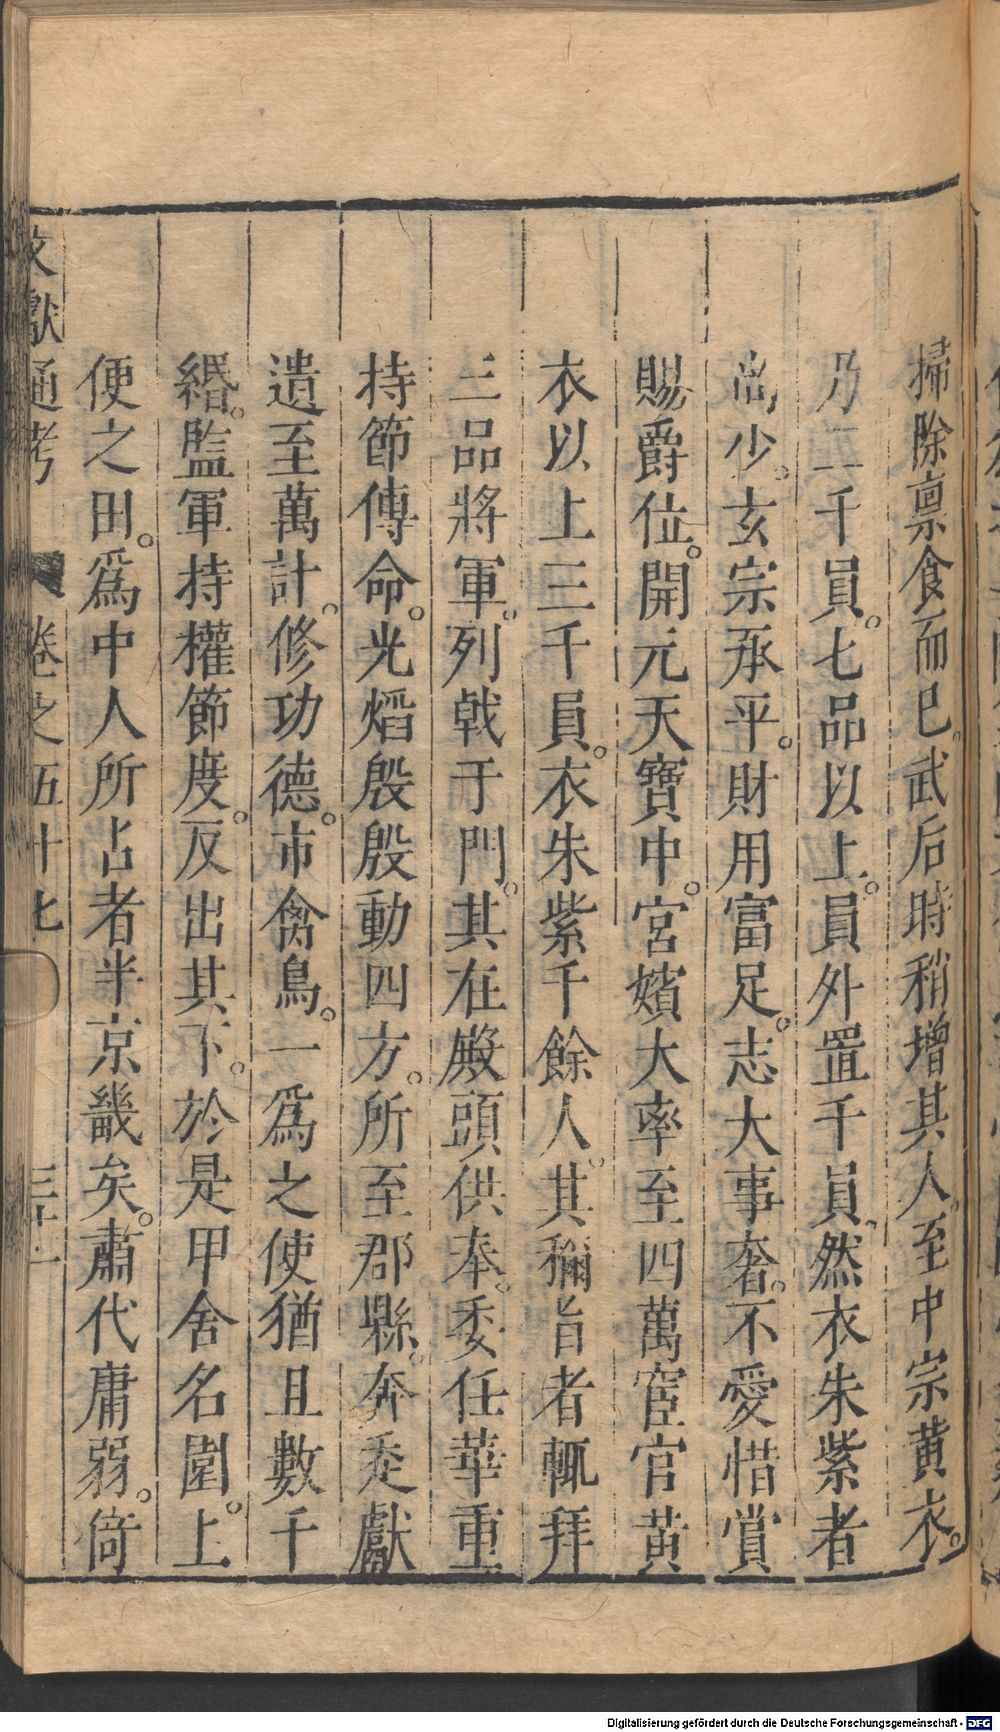 掃除禀食而已。武后時稍增其人。至中宗黄衣。
乃二千員。七品以上。員外置千員。然衣朱紫者
尚少。玄宗承平。財用富足。志大事奢。不愛惜賞
賜爵位。開元天寶中。宮嬪大率至四萬宦官黄
衣以上三千員。衣朱紫千餘人。其稱旨者輒拜
三品將軍。列戟于門。其在殿頭供奉。委任華重
持節傳命。光熖殷殷動四方。所至郡縣。奔走獻
遺至萬計。修功德。市禽鳥。一爲之使猶且數千
緡。監軍持權節度。反出其下。於是甲舍名園。上
便之田。爲中人所占者半京畿矣。肅代庸弱。倚
文獻通考 卷之五十七 三十一
Digitalisierung gefördert durch die Deutsche Forschungsgemeinschaft - DFG